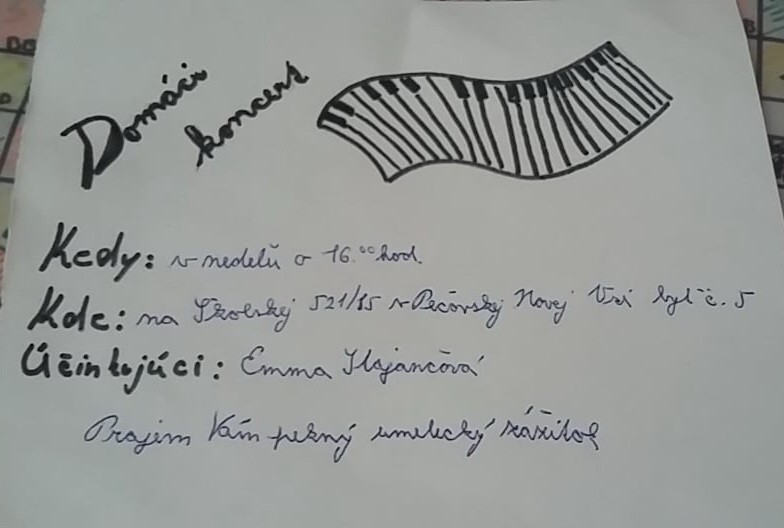 Domáci
koncert
Kedy: v nedelu o 16.00 hod.
Kde: na Školskej 521/15 v Pečovskej Novej Vsi byt č. 5
Účinkujúci: Emma
Prajem Vám pekný umelecký zážitok